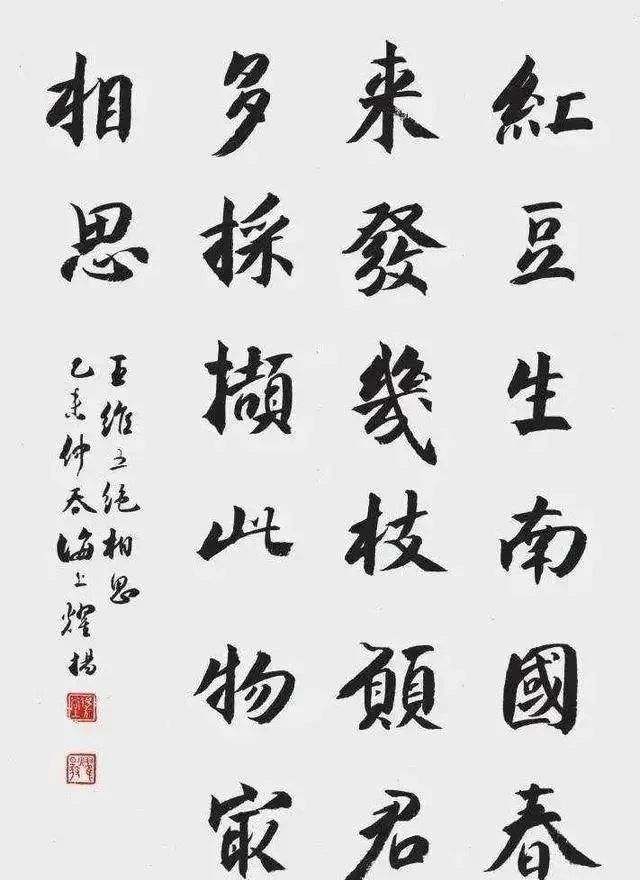 紅豆生南國春
来發幾枝願君
多採擷此物冣
相思
王維五絕相思
乙未仲春海上燿楊